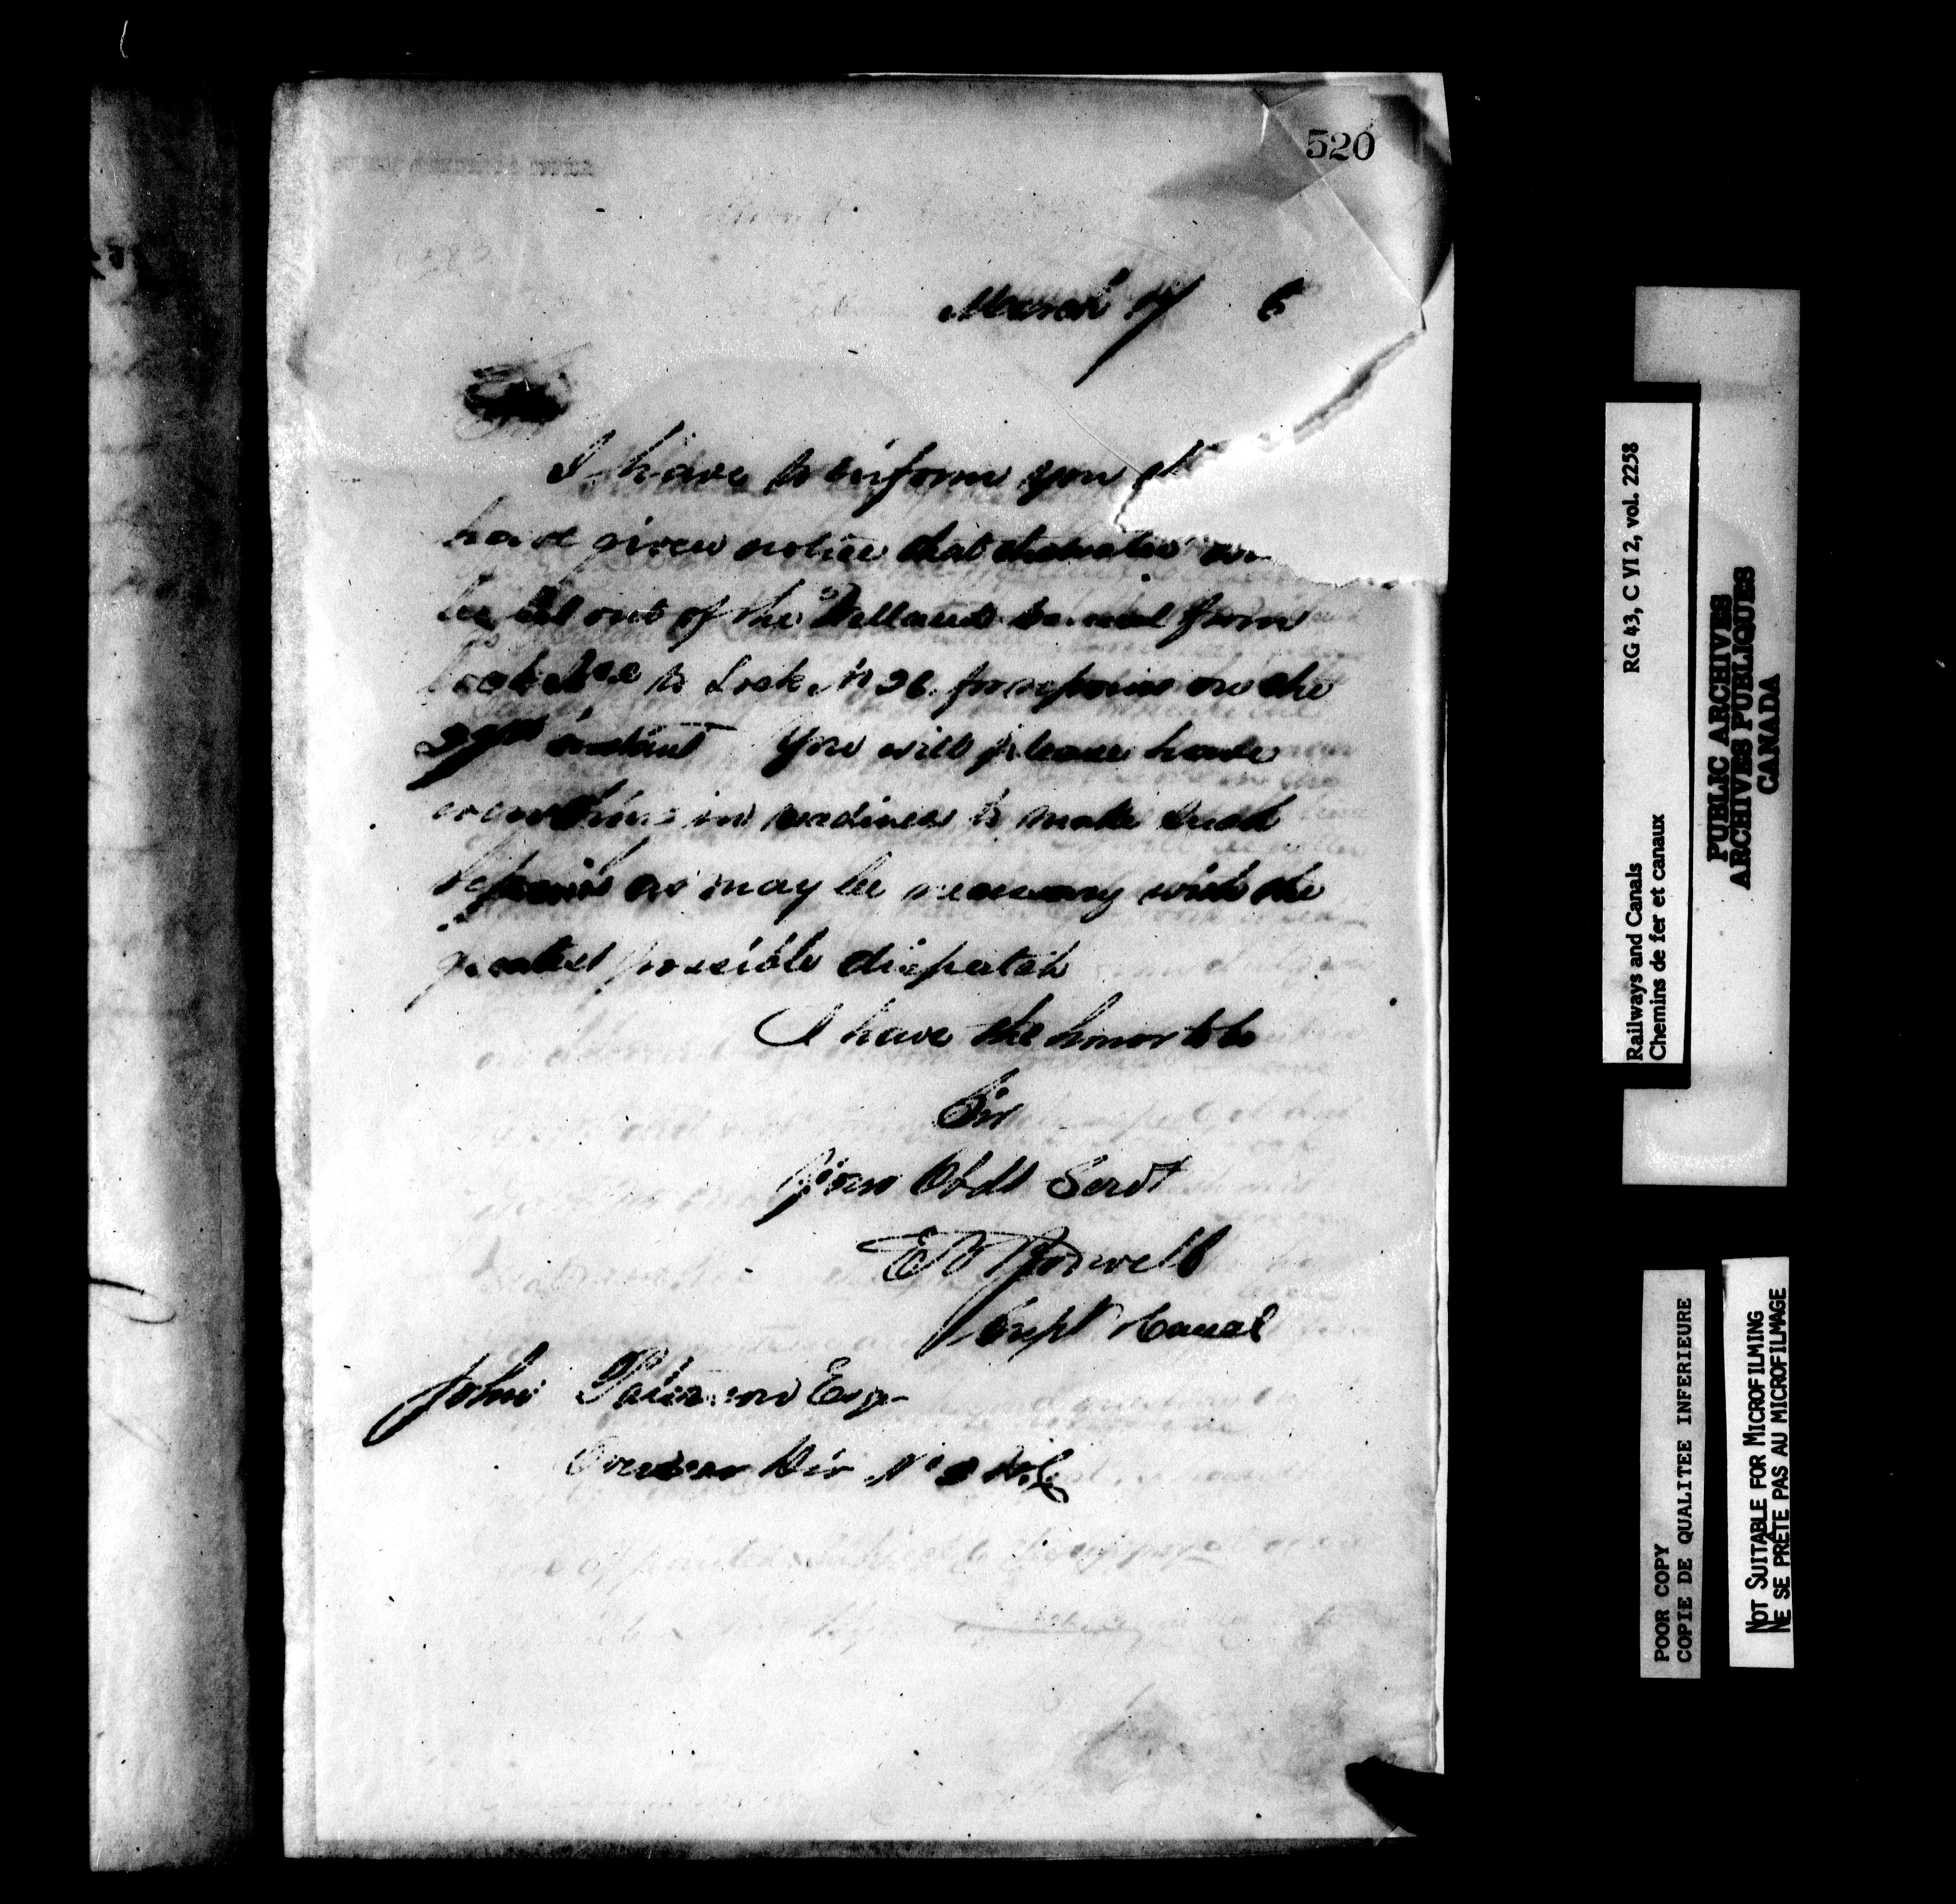 520
March 17 6
Sir
I have to inform you
have given notice that the water
be let out of the Welland Canal from
Lock No 2 to Lock No 26 for repairs on the
27th instant You will please have
everything in readiness to make such
repairs as may be necessary with the
greatest possible dispatch
I have the honor to be
Sir
Your Obdt Servt
E V Bodwell
Supt Canal
John Paterson Esqr
Overseer Div No
RG 43, C VI 2, vol. 2258
Railways and Canals
Chemins de fer et canaux
PUBLIC ARCHIVES
ARCHIVES PUBLIQUES
CANADA
POOR COPY
COPIE DE QUALITEE INFERIEURE
NOT SUITABLE FOR MICROFILMING
NE SE PRÊTE PAS AU MICROFILMAGE